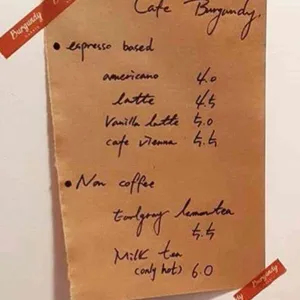 Cafe Burgundy.
Burgundy
• espresso based
americano 4.0
latte 4.5
Vanilla latte 5.0
cafe vienna 5.5
• Non coffee
Earlgray lemontea
5.5
Milk tea
(only hot) 6.0
Burgundy